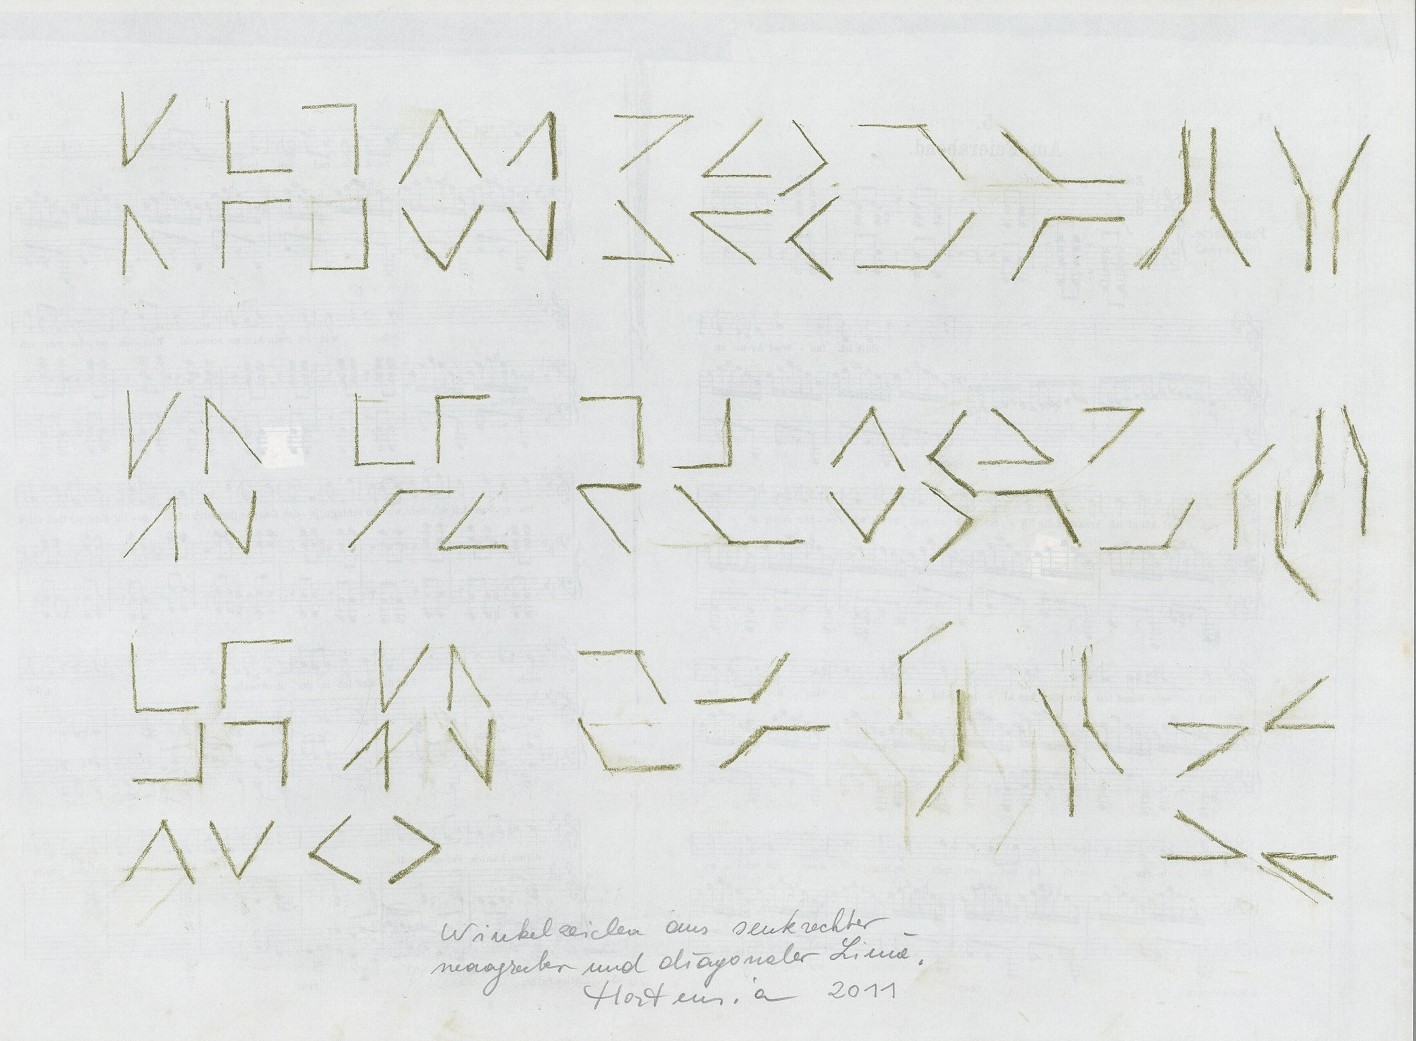 Winkelzeichen aus senkrechter
waagrechter und diagonaler Linie.
Hortensia 2011